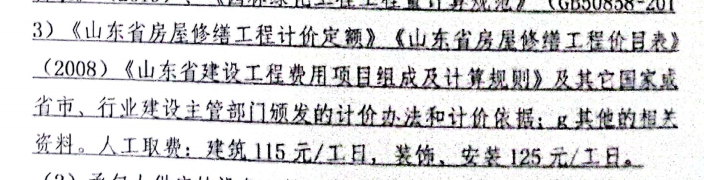 《园林绿化工程工程量计算规范》（GB50858-201
3）《山东省房屋修缮工程计价定额》《山东省房屋修缮工程价目表》
（2008）《山东省建设工程费用项目组成及计算规则》及其它国家或
省市、行业建设主管部门颁发的计价办法和计价依据；g其他的相关
资料。人工取费：建筑115元/工日，装饰、安装125元/工日。